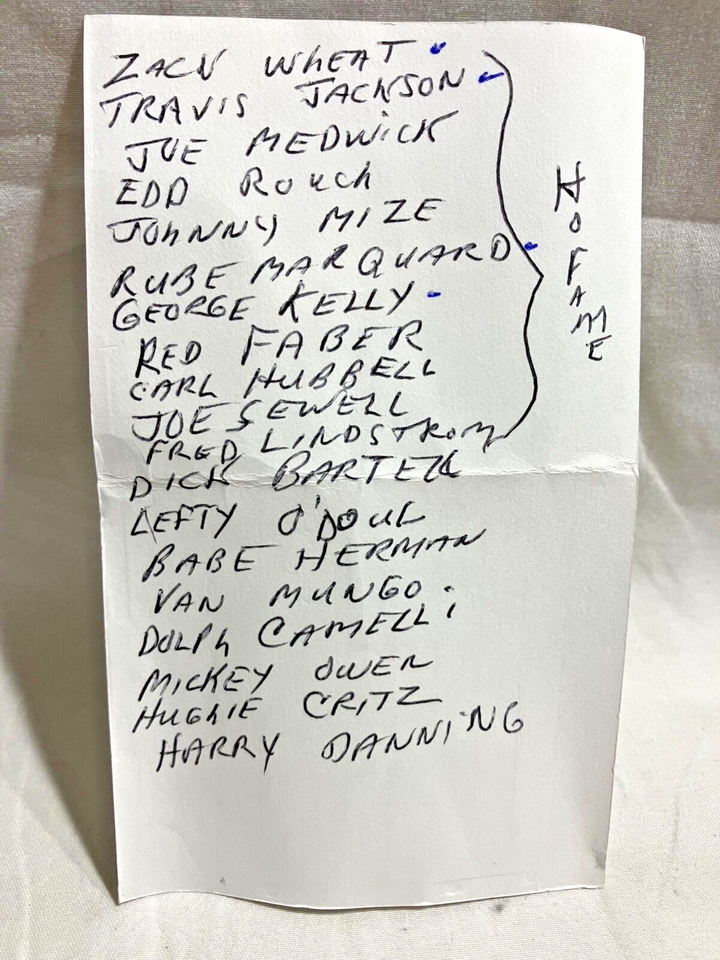 ZACK WHEAT
TRAVIS JACKSON
JOE MEDWICK
EDD Rouch
JOHNNY MIZE
RUBE MARQUARD
GEORGE KELLY
RED FABER
CARL HUBBELL
JOE SEWELL
FRED LINDSTROM
DICK BARTELL
LEFTY O'DOUL
BABE HERMAN
VAN MUNGO
DOLPh CAMELLi
MICKEY OWEN
HUGhIE CRITZ
HARRY DANNING
H o FAME